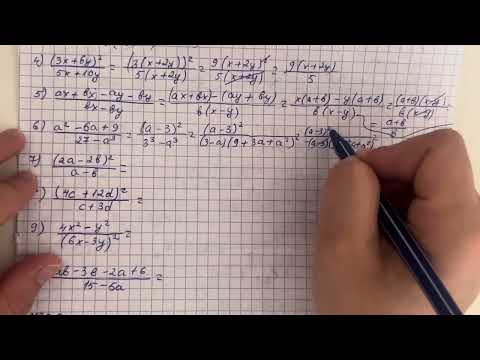 4) (3x+6y)²/5x+10y = (3(x+2y))²/5(x+2y) = 9(x+2y)²/5(x+2y) = 9(x+2y)/5
5) ax+bx-ay-by/bx-by = (ax+bx)-(ay+by)/b(x-y) = x(a+b)-y(a+b)/b(x-y) = (a+b)(x-y)/b(x-y) = a+b/b
6) a²-6a+9/27-a³ = (a-3)²/3³-a³ = (a-3)²/(3-a)(9+3a+a²) = (a-3)²/-(a-3)
7) (2a-2b)²/a-b =
(4c+12d)²/c+3d =
9) 4x²-y²/(6x-3y)² =
-3b-2a+6/15-5a =